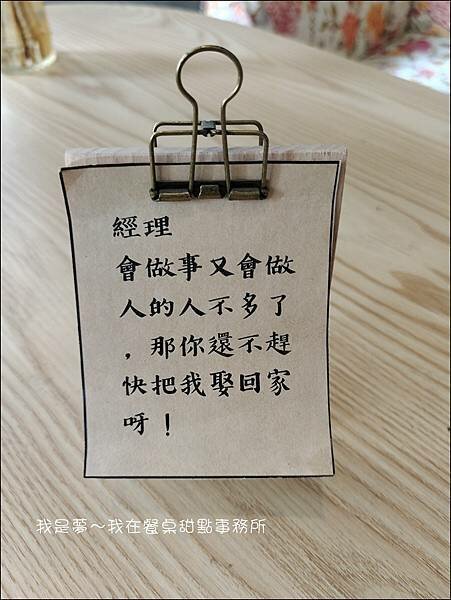 經理
會做事又會做
人的人不多了
，那你還不趕
快把我娶回家
呀！
我是夢～我在餐桌甜點事務所